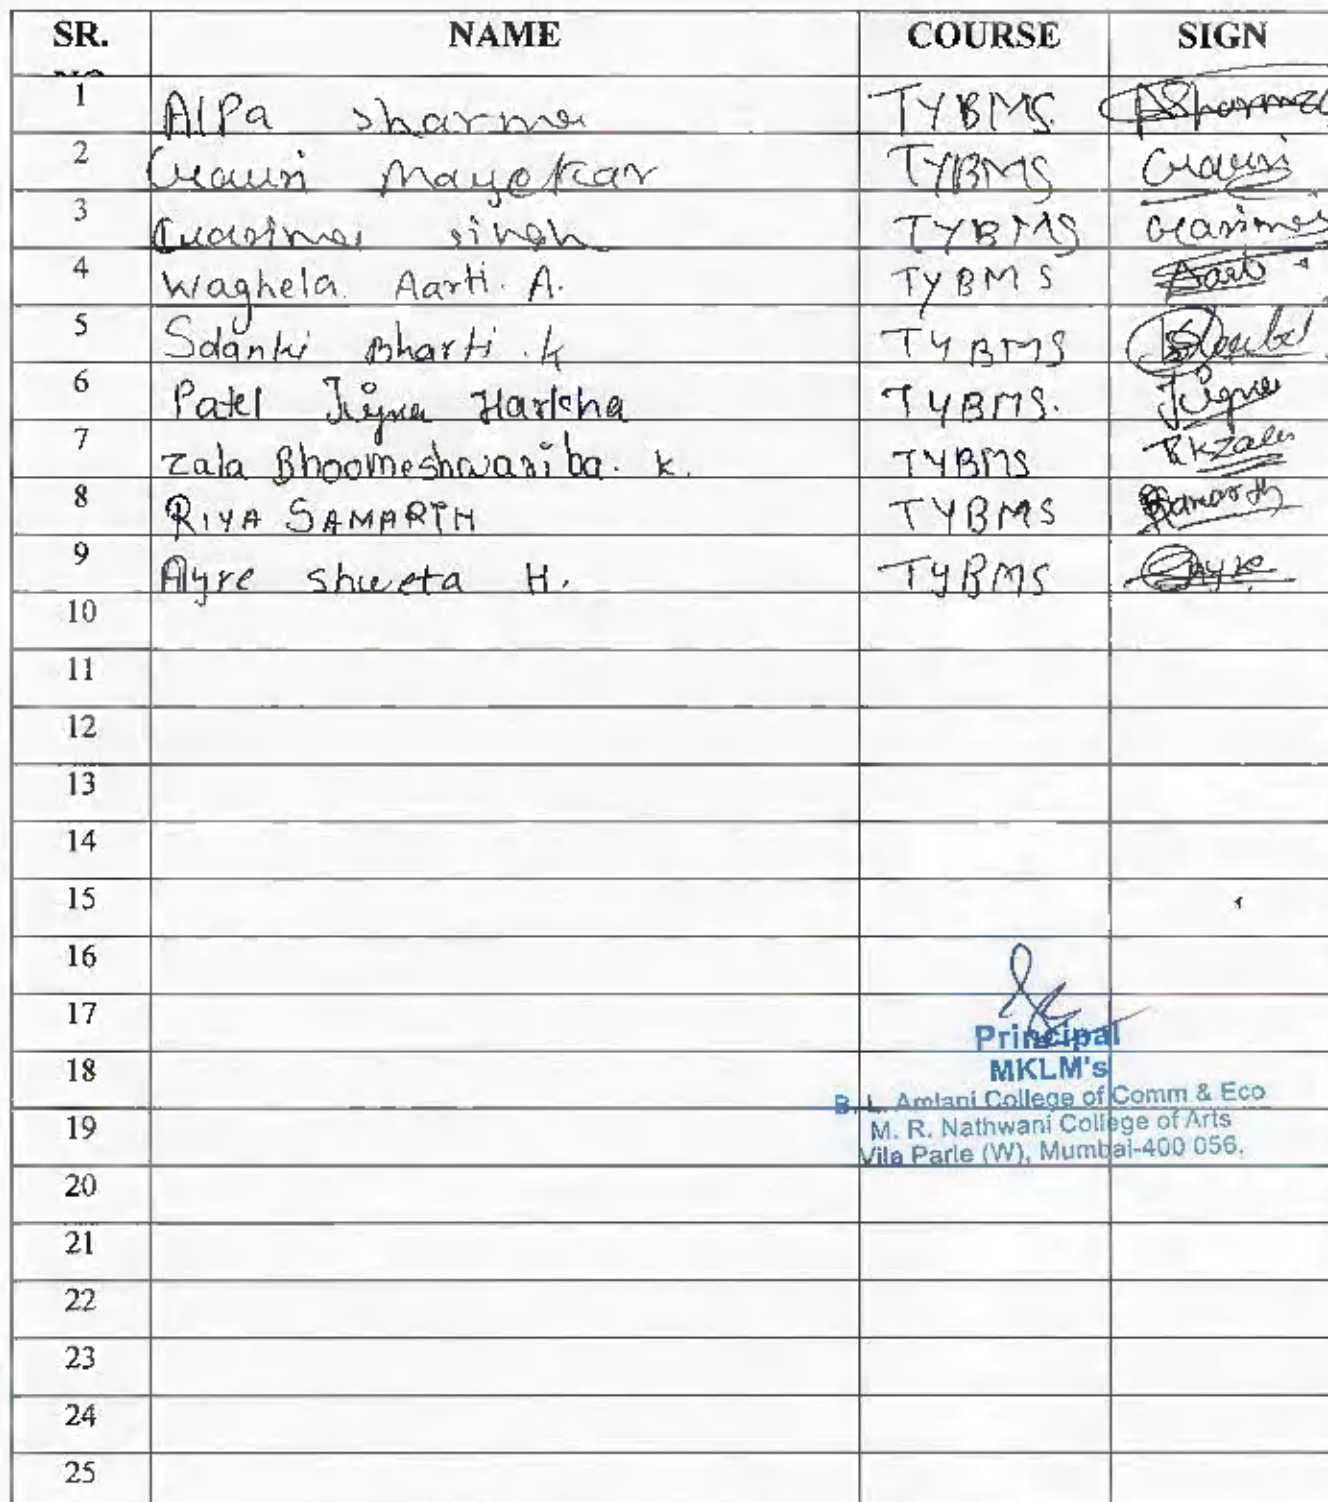 SR. NAME COURSE SIGN
NO
1 AlPa sharma TYBMS. ASharma
2 Gauri Mayekar TYBMS Gauri
3 Garima singh TYBMS Garima
4 Waghela Aarti. A. TYBMS Aarti
5 Solanki Bharti. k TYBMS
6 Patel Jigna Harkha TYBMS. Jigna
7 Zala Bhoomeshwari ba. k. TYBMS Bkzala
8 RIYA SAMARTH TYBMS Samarth
9 Ayre shweta H. TYBMS Ayre
10
11
12
13
14
15
16
17
Principal
18 MKLM's
B. L. Amlani College of Comm & Eco
19 M. R. Nathwani College of Arts
Vila Parle (W), Mumbai-400 056.
20
21
22
23
24
25